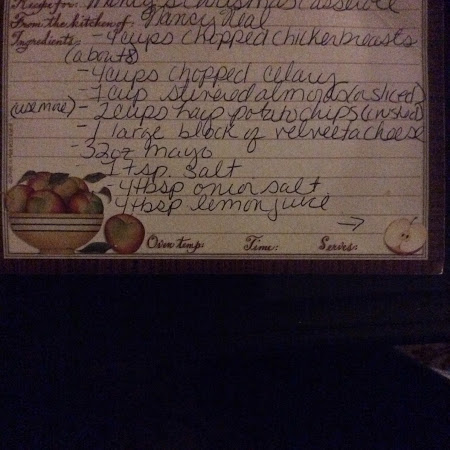 Recipe for: Christmas Casserole
From the kitchen of: Nancy Neal
Ingredients: - 4 cups chopped chicken breasts
(about 8)
- 4 cups chopped celary
- 1 cup slivered almonds (or sliced)
(use more) - 2 cups haip potato chips (crushed)
- 1 large block of velveeta cheese
- 32 oz mayo
- 1 tsp. salt
- 4 tbsp onion salt
- 4 tbsp lemon juice
→
Oven temp: Time: Serves: